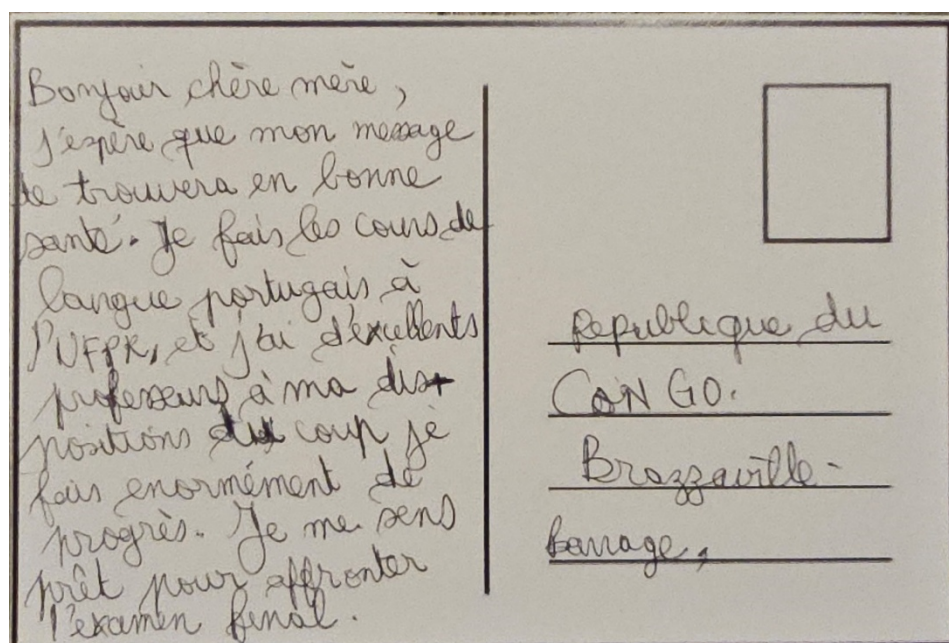 Bonjour chère mère,
J'espère que mon message
te trouvera en bonne
santé. Je fais les cours de
langue portugais à
l'UFPR, et j'ai d'excellents
professeurs à ma dis-
positions du coup je
fais enormément de
progrès. Je me sens
prêt pour affronter
l'examen final.
Republique du
CONGO.
Brazzaville-
barrage,